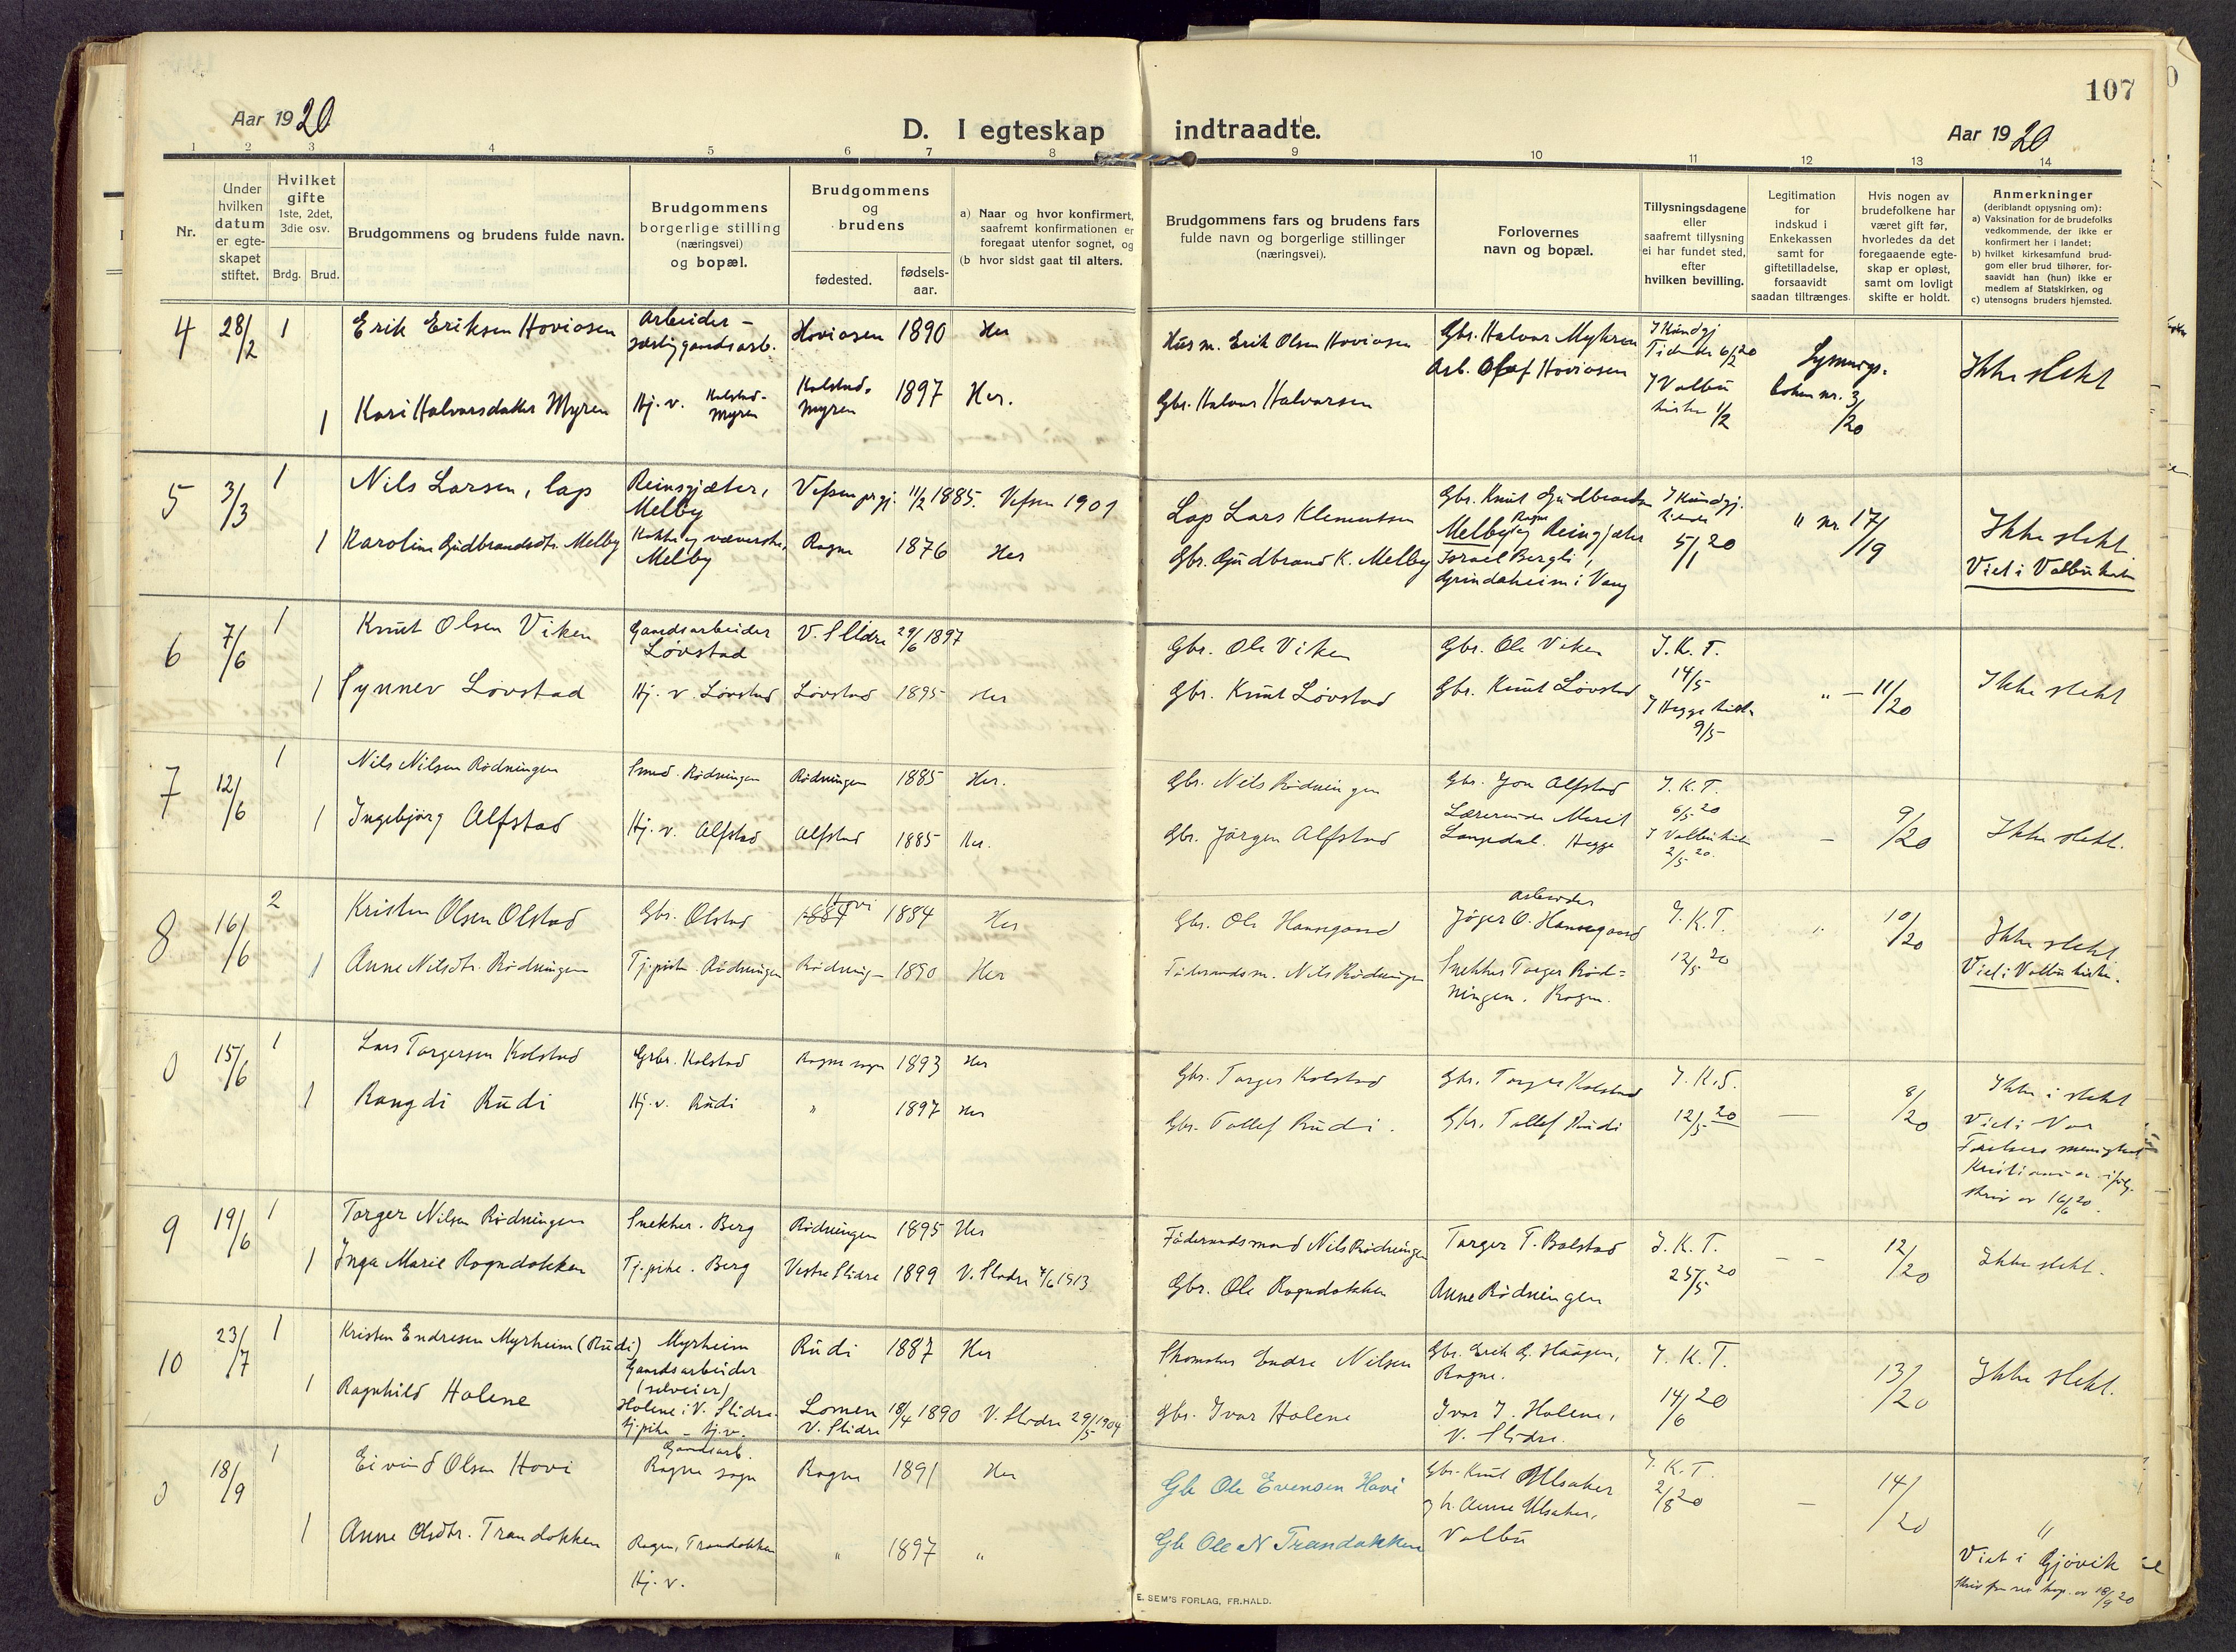 107
Aar 1920
D. I egteskap indtraadte.
Aar 1920
1 2 3 4 5 6 7 8 9 10 11 12 13 14
Nr.
Under hvilken datum er egte-skapet stiftet.
Hvilket gifte 1ste, 2det, 3die osv.
Brdg. Brud.
Brudgommens og brudens fulde navn.
Brudgommens borgerlige stilling (næringsvei) og bopæl.
Brudgommens og brudens
fødested.
fødsels-aar.
a) Naar og hvor konfirmert, saafremt konfirmationen er foregaat utenfor sognet, og
(b hvor sidst gaat til alters.
Brudgommens fars og brudens fars fulde navn og borgerlige stillinger (næringsvei).
Forlovernes navn og bopæl.
Tillysningsdagene eller saafremt tillysning ei har fundet sted, efter hvilken bevilling.
Legitimation for indskud i Enkekassen samt for giftetilladelse, forsaavidt saadan tiltrænges.
Hvis nogen av brudefolkene har været gift før, hvorledes da det foregaaende egte-skap er opløst, samt om lovligt skifte er holdt.
Anmerkninger (deriblandt oplysning om):
a) Vaksination for de brudefolks vedkommende, der ikke er konfirmert her i landet;
b) hvilket kirkesamfund brud-gom eller brud tilhører, for-saavidt han (hun) ikke er medlem af Statskirken, og
c) utensogns bruders hjemsted.
4 28/2 1 Erik Eriksen Hoviosen Arbeider - særlig gaardsarb. Hoviosen 1890 Her Husm. Erik Olsen Hoviosen Gbr. Halvor Myhren J Kundgj Tidende 6/2 20 Lysnings. Ikke slekt
1 Kari Halvorsdatter Myren Hj. v. Kolstad-Myren Kolstad-myren 1897 Her. Gbr. Halvor Halvorsen Arb. Olaf Hoviosen J Volbu kirke 1/2 boken nr. 3/20
5 3/3 1 Nils Larsen, lap Reinsgjæter, Melby Vefsen prgj. 11/2 1885. Vefsen 1901 Lap Lars Klementsen Gbr. Knut Gudbrandsen Melby Rogne og Reingjæter J Kundgj. tidende 5/1 20 " nr. 17/19 Ikke slekt.
1 Karoline Gudbrandsdtr. Melby Kokke og væverske, Melby Rogne 1876 Her Gbr. Gudbrand K. Melby Israel Bergli, Grindaheim i Vang Viet i Volbu kirke
6 7/6 1 Knut Olsen Viken Gaardsarbeider Løvstad V. Slidre 29/6 1897 Gbr. Ole Viken Gbr. Ole Viken J. K. T. 14/5
1 Synnev Løvstad Hj. v. Løvstad Løvstad 1895 Her Gbr. Knut Løvstad Gbr. Knut Løvstad J Hegge kirke 9/5 " — 11/20 Ikke slekt
7 12/6 1 Nils Nilsen Rødningen Smed. Rødningen Rødningen 1885 Her. Gbr. Nils Rødningen Gbr. Jon Alfstad J. K. T. 6/5 20
1 Ingebjørg Alfstad Hj. v. Alfstad Alfstad 1885 Her. Gbr. Jørgen Alfstad Lærerinde Marit Langedal. Hegge J Volbu kirke 2/5 20. — 9/20 Ikke slekt.
8 16/6 2 Kristen Olsen Olstad Gbr. Olstad Hovi 1884 Her Gbr. Ole Hansegaard Arbeider Jøger O. Hansegaard J. K. T. 12/5 20 " 10/20 Ikke slekt.
1 Anne Nilsdtr. Rødningen Tj.pike. Rødningen Rødning- 1890 Her Føderaadsm. Nils Rødningen Snekker Torger Rød=ningen. Rogne. Viet i Volbu kirke.
0 15/6 1 Lars Torgersen Kolstad Grbr. Kolstad Rogne sogn 1893 Her Gbr. Torger Kolstad Gbr. Torger Kolstad J. K. T. 12/5 20 — 8/20 Ikke i slekt
1 Rangdi Rudi Hj. v. Rudi " 1897 Her Gbr. Tollef Rudi. Gbr. Tollef Rudi Viet i Vor Frelsers menighet Kristiania ifølg. skriv av 16/6 20.
9 19/6 1 Torger Nilsen Rødningen Snekker. Berg Rødningen 1895 Her Føderaadsmand Nils Rødningen Torger T. Bolstad J. K. T. 25/5 20 — — 12/20 Ikke slekt.
1 Inga Marie Rogndokken Tj.pike. Berg Vestre Slidre 1899 V. Slidre 7/6 1913 Gbr. Ole Rogndokken Anne Rødningen
10 23/7 1 Kristen Endresen Myrheim (Rudi) Myrheim Gaardsarbeider (selveier) Rudi 1887 Her Skomaker Endre Nilsen Gbr. Erik G. Haugen, Rogne. J. K. T. 14/6 20 13/20 Ikke slekt.
1 Ragnhild Holene Holene i V. Slidre. tj.pike - hj.v. Lomen V. Slidre 18/4 1890 V. Slidre 29/5 1904 Gbr. Ivar Holene Ivar I. Holene, V. Slidre.
0 18/9 1 Eivind Olsen Hovi Gaardsarb. Rogne sogn Rogne 1891 Her Gb Ole Evensen Hovi Gbr. Knut Ulsaker og h. Anne Ulsaker, Volbu J. K. T. 2/8 20 — 14/20 "
1 Anne Olsdtr. Trandokken Rogne, Trandokken Hj. v. " 1897 " Gb Ole N Trandokken Viet i Gjøvik
skriv fra res. kap. av 18/9 20
E. SEM'S FORLAG, FR.HALD.